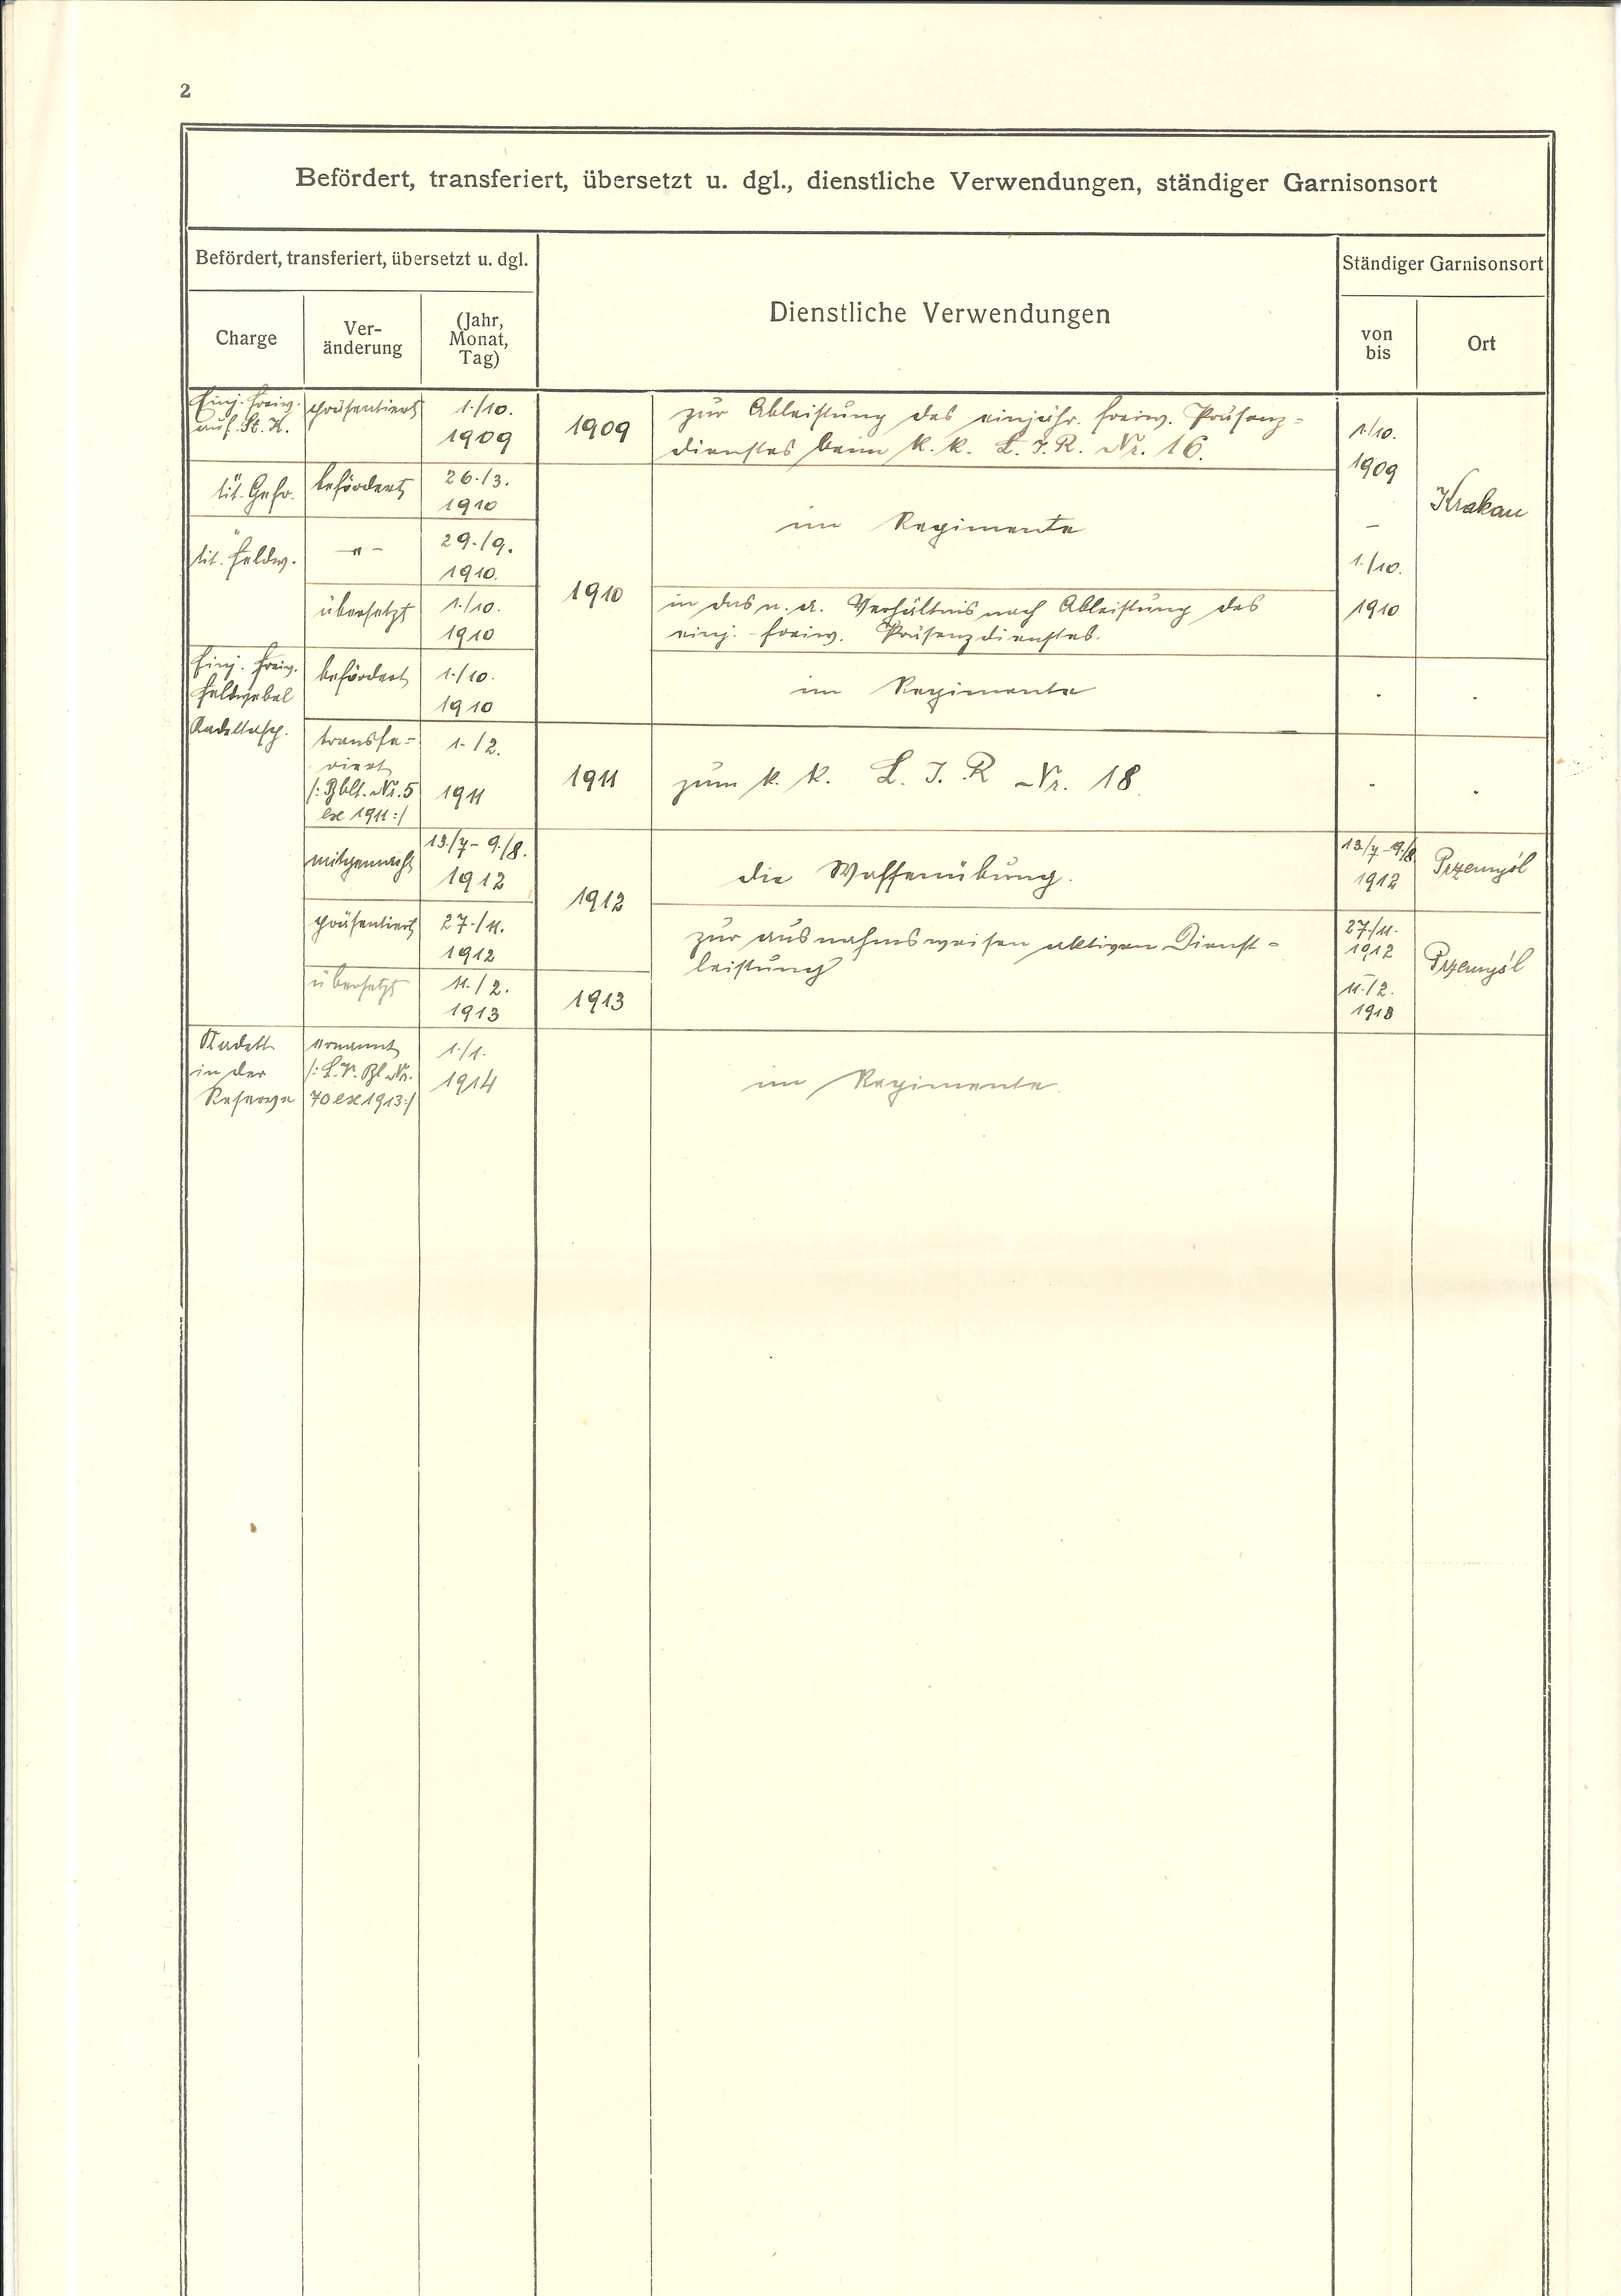 2
Befördert, transferiert, übersetzt u. dgl., dienstliche Verwendungen, ständiger Garnisonsort
Befördert, transferiert, übersetzt u. dgl.
Dienstliche Verwendungen
Ständiger Garnisonsort
Charge
Ver-
änderung
(Jahr,
Monat,
Tag)
von
bis
Ort
Einj. freiw.
auf St. K.
präsentiert
1./10.
1909
1909
zur Ableistung des einjähr. freiw. Präsenz=
dienstes beim k. k. L. I. R. Nr. 16.
1./10.
1909
–
1./10.
1910
Krakau
" tit. Gefr.
befördert
26./3.
1910
1910
im Regimente
" tit. Feldw.
–"–
29./9.
1910.
übersetzt
1./10.
1910
in das n. a. Verhältnis nach Ableistung des
einj.-freiw. Präsenzdienstes.
Einj. freiw.
Feldwebel
Kadettasp.
befördert
1./10.
1910
im Regimente
transfe=
riert
/: Bblt. Nr. 5
ex 1911 :/
1./2.
1911
1911
zum k. k. L. I. R Nr. 18
mitgemacht
13./7 – 9./8.
1912
1912
die Waffenübung.
13./7 – 9./8
1912
Przemyśl
präsentiert
27./11.
1912
zur ausnahmsweisen aktiven Dienst=
leistung
27./11.
1912
–
11./2.
1913
Przemyśl
übersetzt
11./2.
1913
1913
Kadett
in der
Reserve
ernannt
/: L. V. Bl. Nr.
70 ex 1913 :/
1./1.
1914
im Regimente.